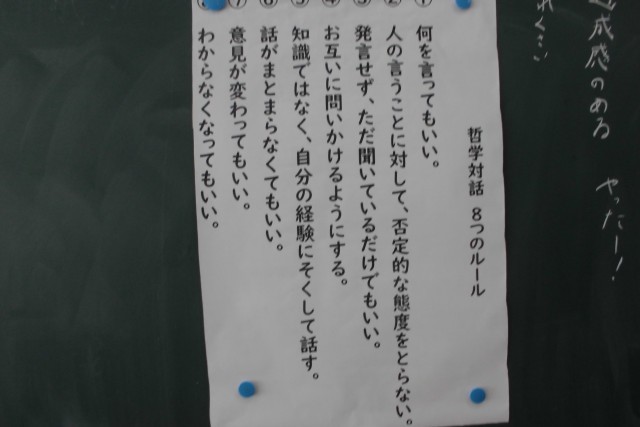 成感のある やったー!
れくさい
哲学対話 8つのルール
① 何を言ってもいい。
② 人の言うことに対して、否定的な態度をとらない。
③ 発言せず、ただ聞いているだけでもいい。
④ お互いに問いかけるようにする。
⑤ 知識ではなく、自分の経験にそくして話す。
⑥ 話がまとまらなくてもいい。
⑦ 意見が変わってもいい。
わからなくなってもいい。